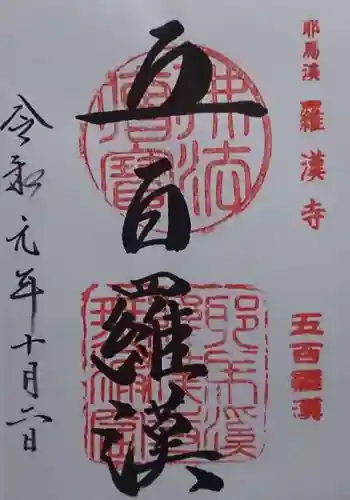 耶馬渓 羅漢寺
五百羅漢
五百羅漢
令和元年十月六日
佛法僧寳